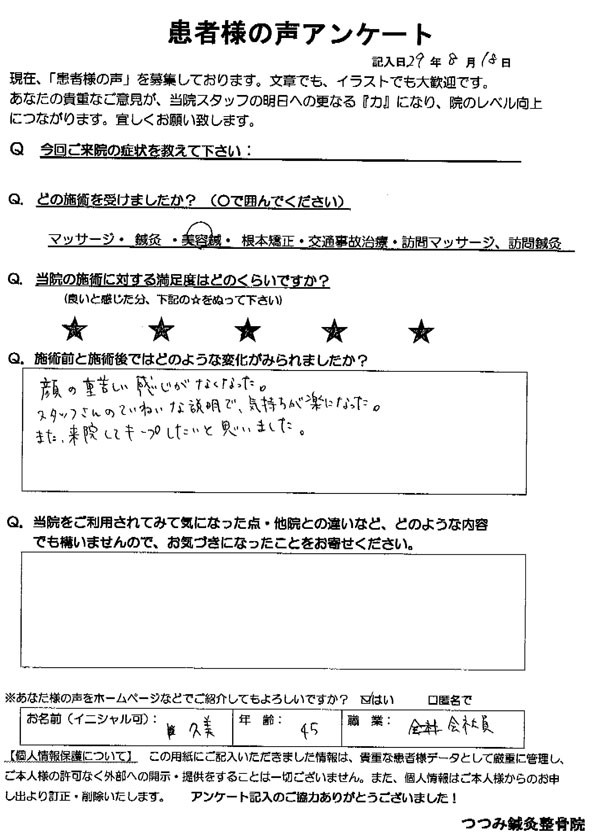 患者様の声アンケート
記入日29年8月18日
現在、「患者様の声」を募集しております。文章でも、イラストでも大歓迎です。
あなたの貴重なご意見が、当院スタッフの明日への更なる『力』になり、院のレベル向上
につながります。宜しくお願い致します。
Q 今回ご来院の症状を教えて下さい：
Q. どの施術を受けましたか？（〇で囲んでください）
マッサージ・ 鍼灸 ・美容鍼・ 根本矯正・交通事故治療・訪問マッサージ、訪問鍼灸
Q. 当院の施術に対する満足度はどのくらいですか？
（良いと感じた分、下記の☆をぬって下さい）
★ ★ ★ ★ ★
Q. 施術前と施術後ではどのような変化がみられましたか？
顔の重苦しい感じがなくなった。
スタッフさんのていねいな説明で、気持ちが楽になった。
また、来院してキープしたいと思いました。
Q. 当院をご利用されてみて気になった点・他院との違いなど、どのような内容
でも構いませんので、お気づきになったことをお寄せください。
※あなた様の声をホームページなどでご紹介してもよろしいですか？ ☑はい □匿名で
お名前（イニシャル可）： 久美 年 齢： 45 職 業： 会社員
【個人情報保護について】 この用紙にご記入いただきました情報は、貴重な患者様データとして厳重に管理し、
ご本人様の許可なく外部への開示・提供をすることは一切ございません。また、個人情報はご本人様からのお申
し出より訂正・削除いたします。 アンケート記入のご協力ありがとうございました！
つつみ鍼灸整骨院